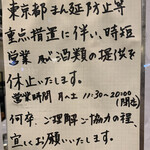 東京都まん延防止等
重点措置に伴い、時短
営業及び酒類の提供を
休止いたします。
営業時間 月〜土 11:30〜20:00
(閉店)
何卒、ご理解ご協力の程、
宜しくお願いいたします。